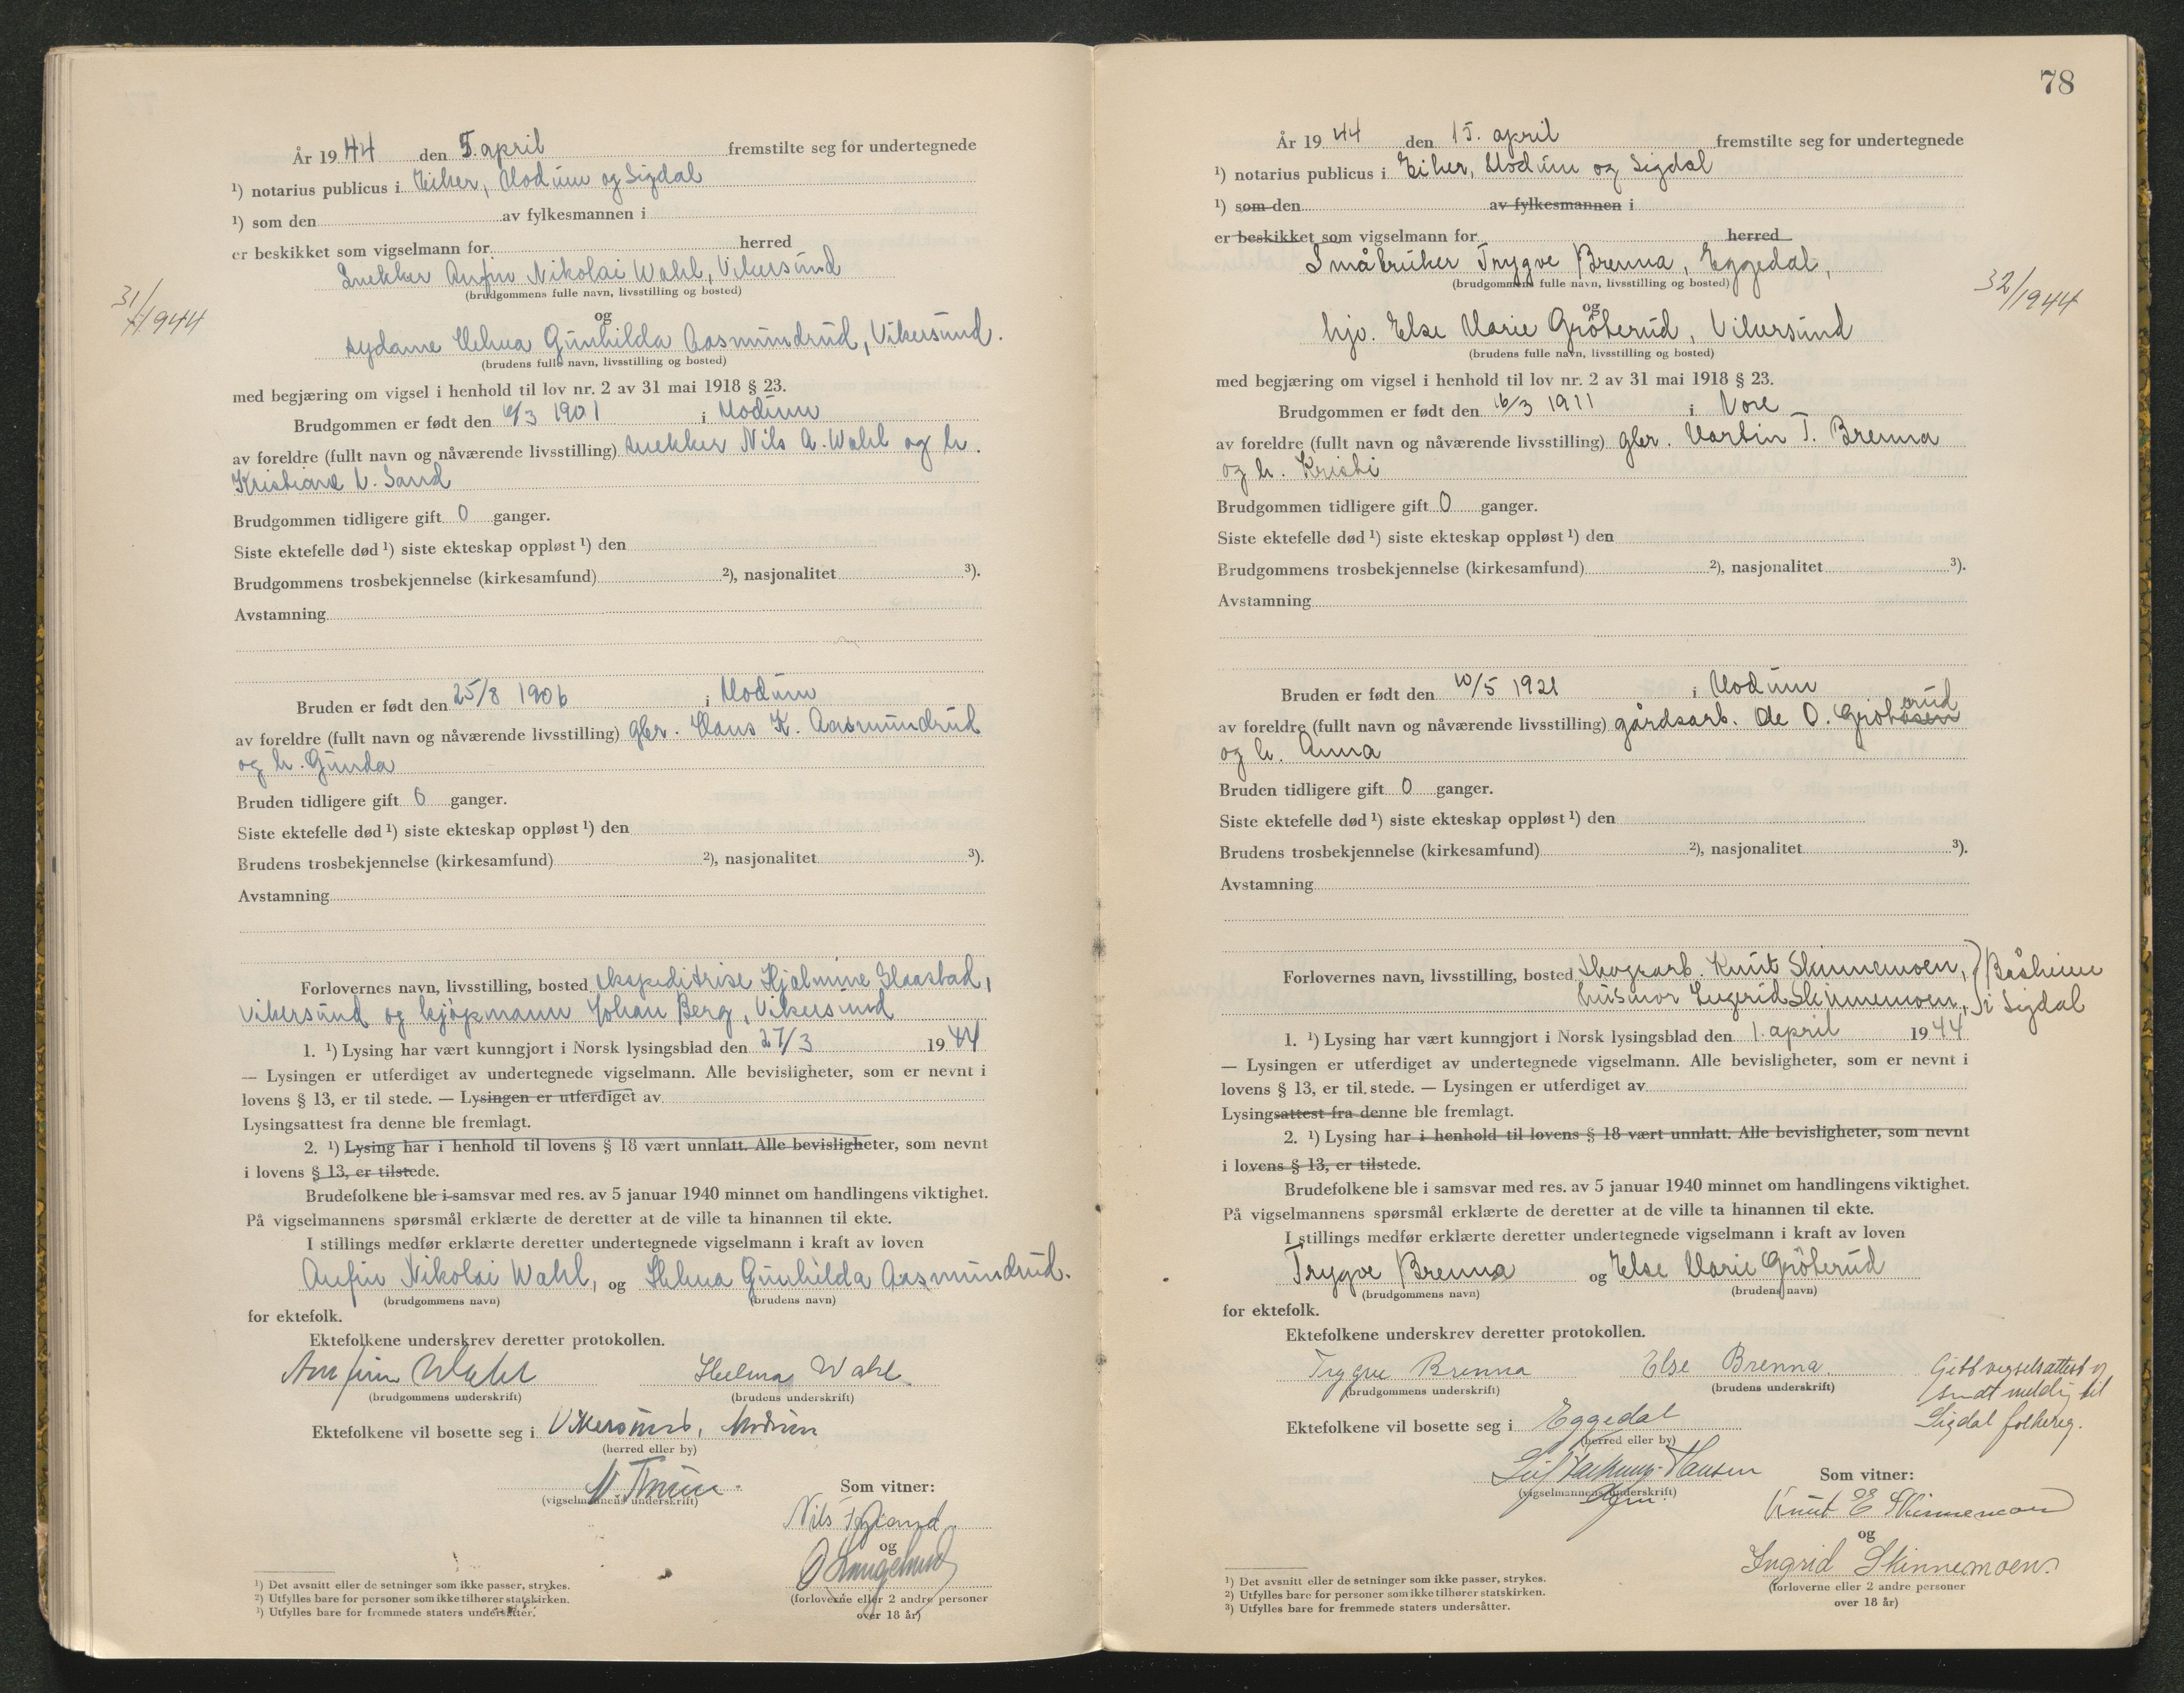 År 19 44 den 5. april fremstilte seg for undertegnede
¹) notarius publicus i Eiker, Modum og Sigdal
¹) som den av fylkesmannen i
er beskikket som vigselmann for herred
Snekker Anfin Nikolai Wahl, Vikersund
(brudgommens fulle navn, livsstilling og bosted)
31/1944
og
sydame Helma Gunhilda Aasmundrud, Vikersund.
(brudens fulle navn, livsstilling og bosted)
med begjæring om vigsel i henhold til lov nr. 2 av 31 mai 1918 § 23.
Brudgommen er født den 6/3 1901 i Modum
av foreldre (fullt navn og nåværende livsstilling) snekker Nils A. Wahl og h.
Kristiane V. Sand
Brudgommen tidligere gift 0 ganger.
Siste ektefelle død ¹) siste ekteskap oppløst ¹) den
Brudgommens trosbekjennelse (kirkesamfund) ²), nasjonalitet ³).
Avstamning
Bruden er født den 25/8 1906 i Modum
av foreldre (fullt navn og nåværende livsstilling) gbr. Hans K. Aasmundrud
og h. Gunda
Bruden tidligere gift 0 ganger.
Siste ektefelle død ¹) siste ekteskap oppløst ¹) den
Brudens trosbekjennelse (kirkesamfund) ²), nasjonalitet ³).
Avstamning
Forlovernes navn, livsstilling, bosted ekspeditrise Hjalmine Glaastad,
Vikersund og kjøpmann Johan Berg, Vikersund
1. ¹) Lysing har vært kunngjort i Norsk lysingsblad den 27/3 19 44
— Lysingen er utferdiget av undertegnede vigselmann. Alle bevisligheter, som er nevnt i
lovens § 13, er til stede. — Lysingen er utferdiget av
Lysingsattest fra denne ble fremlagt.
2. ¹) Lysing har i henhold til lovens § 18 vært unnlatt. Alle bevisligheter, som nevnt
i lovens § 13, er tilstede.
Brudefolkene ble i samsvar med res. av 5 januar 1940 minnet om handlingens viktighet.
På vigselmannens spørsmål erklærte de deretter at de ville ta hinannen til ekte.
I stillings medfør erklærte deretter undertegnede vigselmann i kraft av loven
Anfin Nikolai Wahl, og Helma Gunhilda Aasmundrud.
(brudgommens navn) (brudens navn)
for ektefolk.
Ektefolkene underskrev deretter protokollen.
Anfinn Wahl Helma Wahl.
(brudgommens underskrift) (brudens underskrift)
Ektefolkene vil bosette seg i Vikersund, Modum
(herred eller by)
(vigselmannens underskrift)
Som vitner:
Nils
og
(forloverne eller 2 andre personer
over 18 år)
¹) Det avsnitt eller de setninger som ikke passer, strykes.
²) Utfylles bare for personer som ikke tilhører statskirken.
³) Utfylles bare for fremmede staters undersåtter.
78
År 19 44 den 15. april fremstilte seg for undertegnede
¹) notarius publicus i Eiker, Modum og Sigdal
¹) som den av fylkesmannen i
er beskikket som vigselmann for herred
Småbruker Trygve Brenna, Eggedal,
(brudgommens fulle navn, livsstilling og bosted)
32/1944
og
hjv. Else Marie Gröterud, Vikersund
(brudens fulle navn, livsstilling og bosted)
med begjæring om vigsel i henhold til lov nr. 2 av 31 mai 1918 § 23.
Brudgommen er født den 16/3 1911 i Nore
av foreldre (fullt navn og nåværende livsstilling) gbr. Martin T. Brenna
og h. Kristi
Brudgommen tidligere gift 0 ganger.
Siste ektefelle død ¹) siste ekteskap oppløst ¹) den
Brudgommens trosbekjennelse (kirkesamfund) ²), nasjonalitet ³).
Avstamning
Bruden er født den 10/5 1921 i Modum
av foreldre (fullt navn og nåværende livsstilling) gårdsarb. Ole O. Gröterud
og h. Anna
Bruden tidligere gift 0 ganger.
Siste ektefelle død ¹) siste ekteskap oppløst ¹) den
Brudens trosbekjennelse (kirkesamfund) ²), nasjonalitet ³).
Avstamning
Forlovernes navn, livsstilling, bosted Skogsarb. Knut Skinnemoen, } Båsheim
husmor Ingerid Skinnemoen, i Sigdal
1. ¹) Lysing har vært kunngjort i Norsk lysingsblad den 1. april 19 44
— Lysingen er utferdiget av undertegnede vigselmann. Alle bevisligheter, som er nevnt i
lovens § 13, er til stede. — Lysingen er utferdiget av
Lysingsattest fra denne ble fremlagt.
2. ¹) Lysing har i henhold til lovens § 18 vært unnlatt. Alle bevisligheter, som nevnt
i lovens § 13, er tilstede.
Brudefolkene ble i samsvar med res. av 5 januar 1940 minnet om handlingens viktighet.
På vigselmannens spørsmål erklærte de deretter at de ville ta hinannen til ekte.
I stillings medfør erklærte deretter undertegnede vigselmann i kraft av loven
Trygve Brenna og Else Marie Gröterud
(brudgommens navn) (brudens navn)
for ektefolk.
Ektefolkene underskrev deretter protokollen.
Trygve Brenna Else Brenna.
(brudgommens underskrift) (brudens underskrift)
Gitt vigselsattest og
sendt melding til
Sigdal folkereg.
Ektefolkene vil bosette seg i Eggedal
(herred eller by)
Hansen
(vigselmannens underskrift)
Som vitner:
Knut E Skinnemoen
og
Ingrid Skinnemoen.
(forloverne eller 2 andre personer
over 18 år)
¹) Det avsnitt eller de setninger som ikke passer, strykes.
²) Utfylles bare for personer som ikke tilhører statskirken.
³) Utfylles bare for fremmede staters undersåtter.